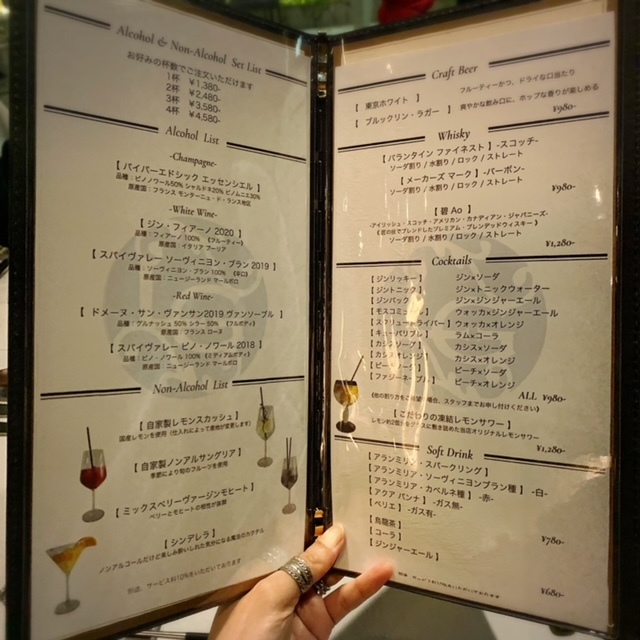 Alcohol & Non-Alcohol Set List
お好みの杯数でご注文いただけます
1杯 ¥1,380-
2杯 ¥2,480-
3杯 ¥3,580-
4杯 ¥4,580-
Alcohol List
-Champagne-
【 パイパーエドシック エッセンシエル 】
品種：ピノノワール50% シャルドネ20% ピノムニエ30%
原産国：フランス モンターニュ・ド・ランス地区
-White Wine-
【 ジン・フィアーノ 2020 】
品種：フィアーノ 100% 《フルーティー》
原産国：イタリア プーリア
【 スパイヴァレー ソーヴィニヨン・ブラン 2019 】
品種：ソーヴィニヨン・ブラン 100% 《辛口》
原産国：ニュージーランド マールボロ
-Red Wine-
【 ドメーヌ・サン・ヴァンサン2019 ヴァンソーブル 】
品種：グルナッシュ 50% シラー 50% 《フルボディ》
原産国：フランス ローヌ
【 スパイヴァレー ピノ・ノワール 2018 】
品種：ピノ・ノワール 100% 《ミディアムボディ》
原産国：ニュージーランド マールボロ
Non-Alcohol List
【 自家製レモンスカッシュ 】
国産レモンを使用（仕入れによって産地が変更します）
【 自家製ノンアルサングリア 】
季節により旬のフルーツを使用
【 ミックスベリーヴァージンモヒート 】
ベリーとモヒートの相性が抜群
【 シンデレラ 】
ノンアルコールだけど楽しみ酔いしれた気分になる魔法のカクテル
別途、サービス料10%を頂いております
Craft Beer
【 東京ホワイト 】 フルーティーかつ、ドライな口当たり
【 ブルックリン・ラガー 】 爽やかな飲み口に、ホップな香りが楽しめる
¥980-
Whisky
【 バランタイン ファイネスト 】-スコッチ-
ソーダ割り / 水割り / ロック / ストレート
【 メーカーズ マーク 】-バーボン-
ソーダ割り / 水割り / ロック / ストレート
¥980-
【 碧 Ao 】
-アイリッシュ・スコッチ・アメリカン・カナディアン・ジャパニーズ-
ソーダ割り / 水割り / ロック / ストレート
¥1,280-
Cocktails
【 ジンリッキー 】 ジン×ソーダ
【 ジントニック 】 ジン×トニックウォーター
【 ジンバック 】 ジン×ジンジャーエール
【 モスコミュール 】 ウォッカ×ジンジャーエール
【 スクリュードライバー 】 ウォッカ×オレンジ
【 キューバリブレ 】 ラム×コーラ
【 カシスソーダ 】 カシス×ソーダ
【 カシスオレンジ 】 カシス×オレンジ
【 ピーチソーダ 】 ピーチ×ソーダ
【 ファジーネーブル 】 ピーチ×オレンジ
ALL ¥980-
《他の割り方をご希望の場合、スタッフまでお申し付けください》
【 こだわりの凍結レモンサワー 】
レモン約2個分をグラスに敷き詰めた当店オリジナルレモンサワー
¥1,280-
Soft Drink
【 アランミリア・スパークリング 】
【 アランミリア・ソーヴィニヨンブラン種 】-白-
【 アランミリア・カベルネ種 】-赤-
【 アクア パンナ 】-ガス無-
【 ペリエ 】-ガス有-
¥780-
【 烏龍茶 】
【 コーラ 】
【 ジンジャーエール 】
¥680-